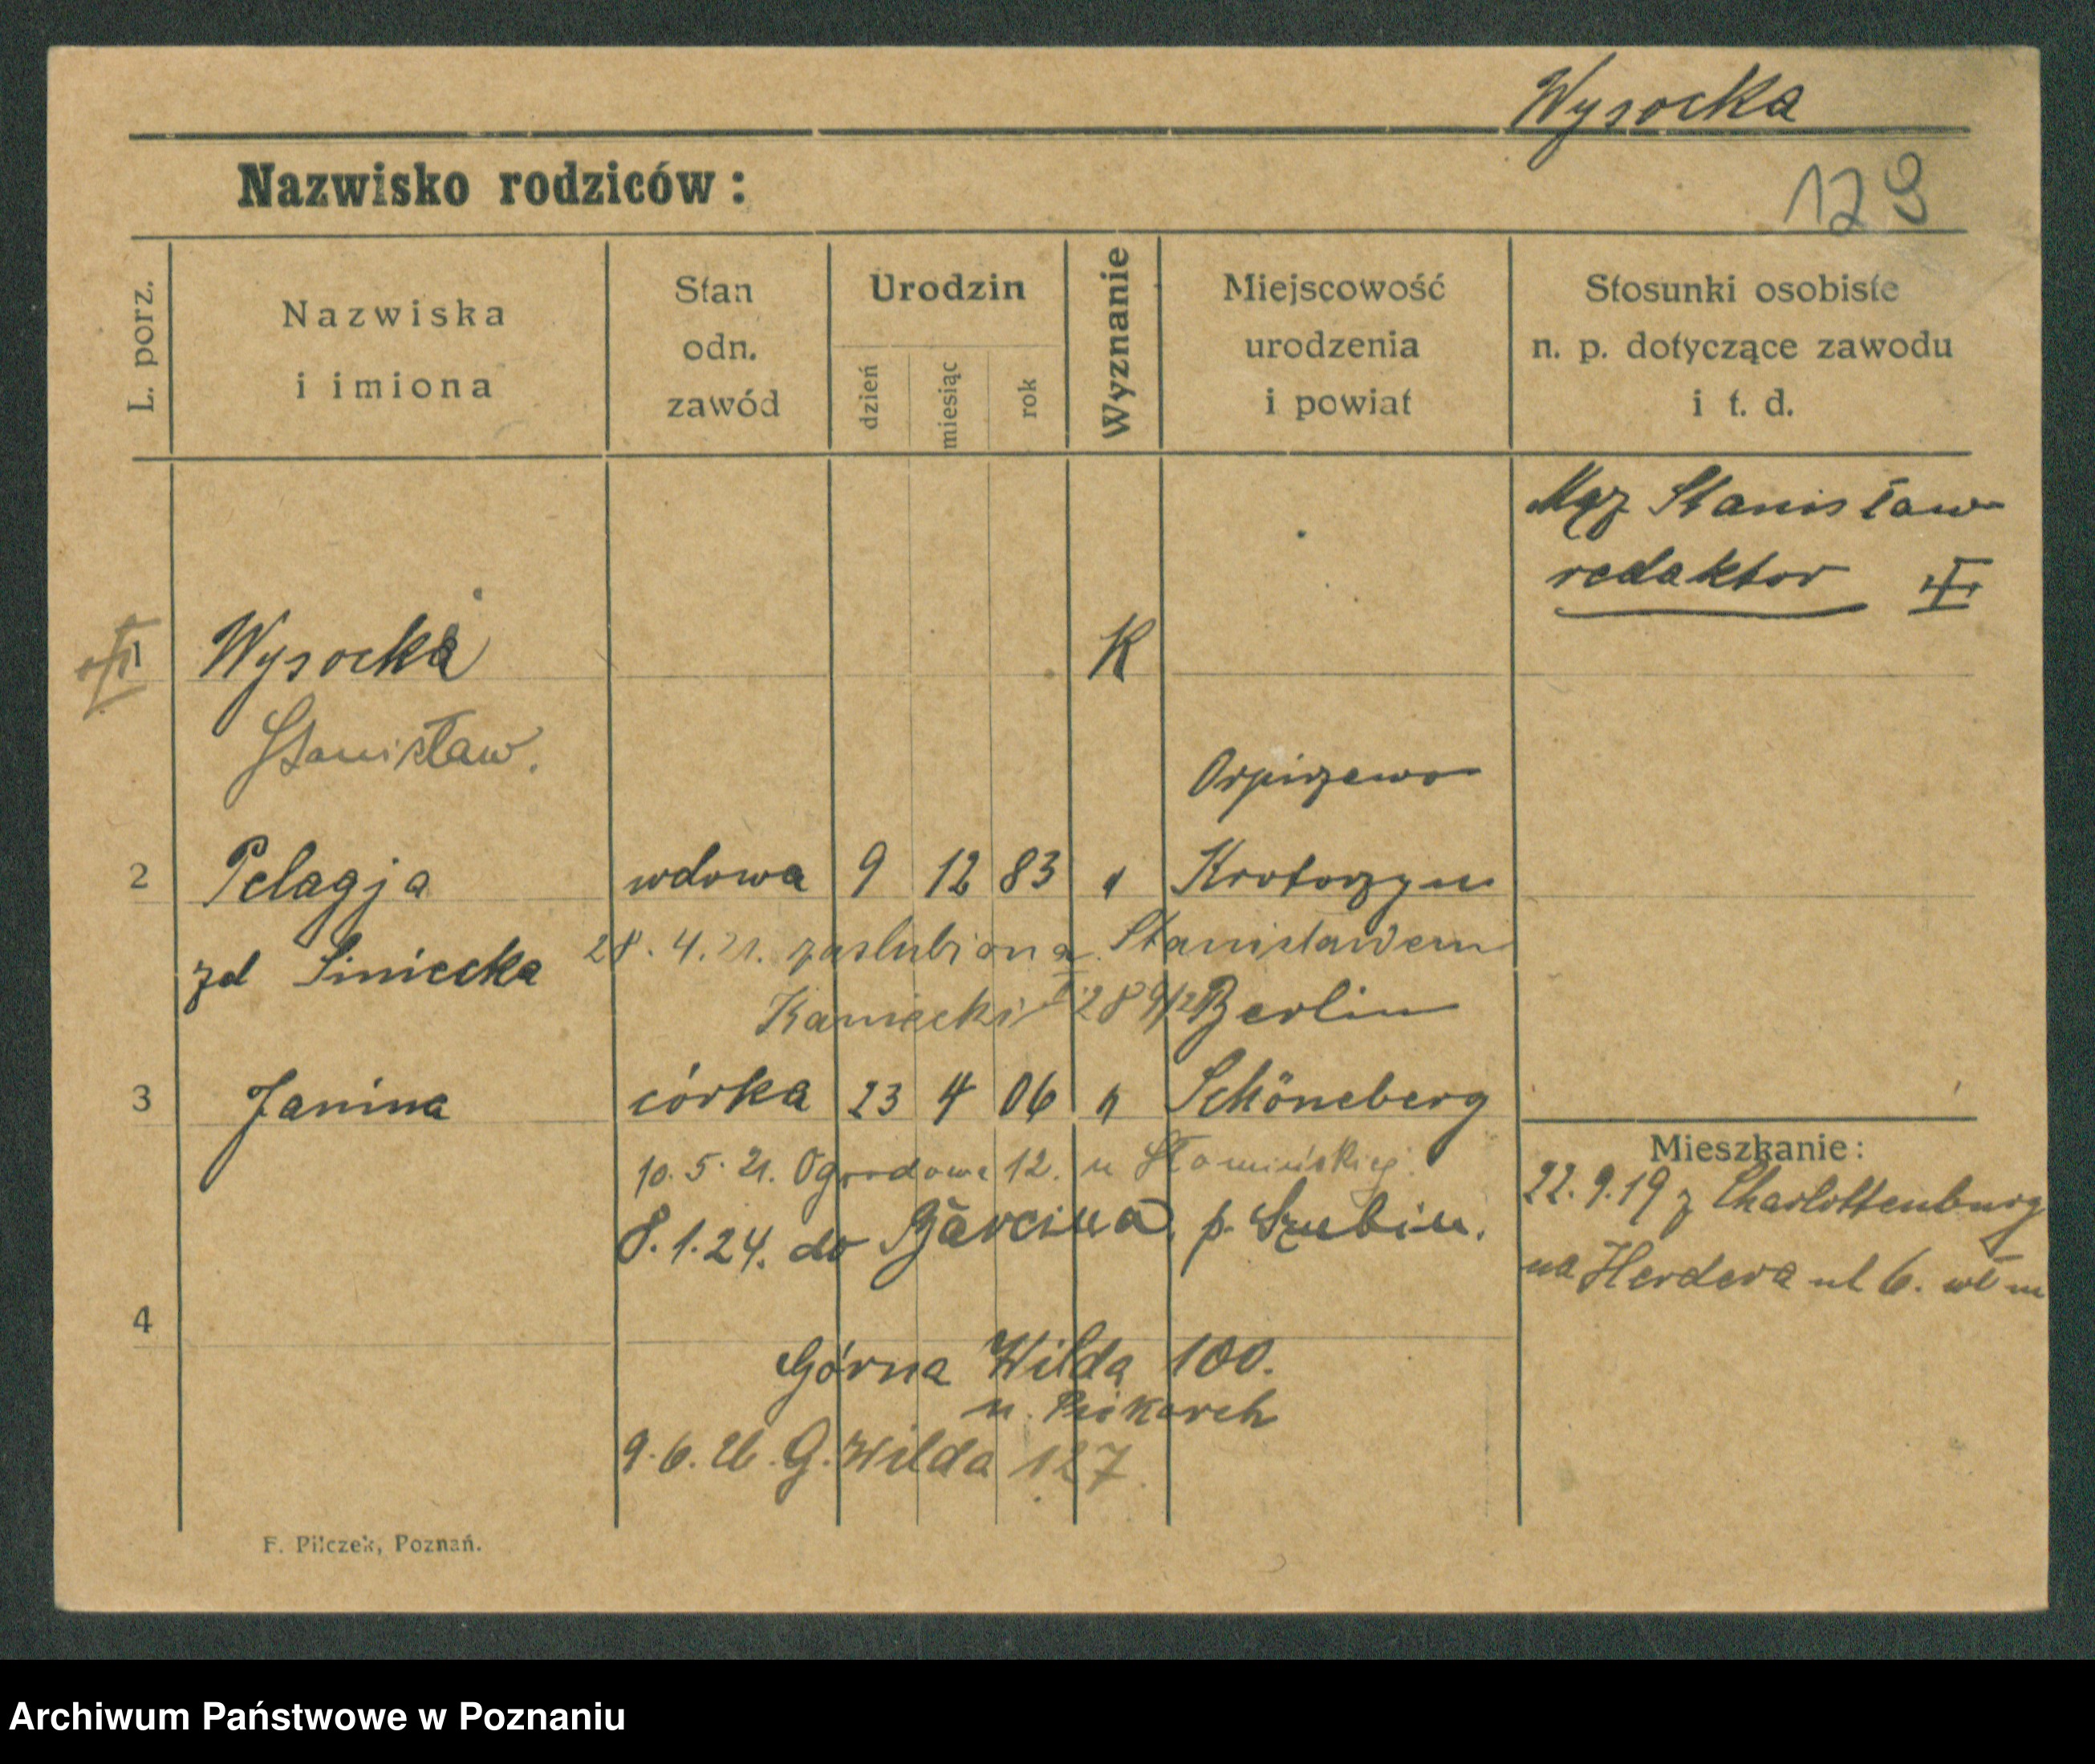 Wysocka
Nazwisko rodziców:
129
L. porz.
Nazwiska
i imiona
Stan
odn.
zawód
Urodzin
dzień
miesiąc
rok
Wyznanie
Miejscowość
urodzenia
i powiat
Stosunki osobiste
n. p. dotyczące zawodu
i t. d.
Mąż Stanisław
redaktor
1 Wysocka K
Stanisław.
Orpiszewo
2 Pelagja wdowa 9 12 83 " Krotoszyn
zd Siniecka 28. 4. 21. zaslubiona Stanisławem
Kaniecki Berlin
3 Janina córka 23 4 06 " Schöneberg
10. 5. 21. Ogrodowa 12. u Słomińskiej.
8. 1. 24. do Barcina, p. Szubin.
Mieszkanie:
22. 9. 19 z Charlottenburg
na Herdera ul 6. wł m
4
Górna Wilda 100.
u. Piekarek
9. 6. 26. G. Wilda 127
F. Pilczek, Poznań.
Archiwum Państwowe w Poznaniu